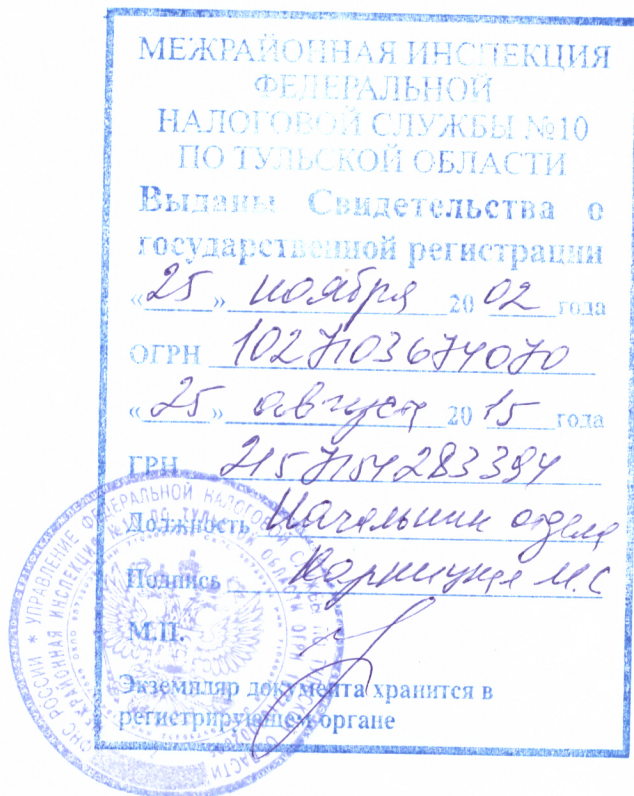 МЕЖРАЙОННАЯ ИНСПЕКЦИЯ
ФЕДЕРАЛЬНОЙ
НАЛОГОВОЙ СЛУЖБЫ №10
ПО ТУЛЬСКОЙ ОБЛАСТИ
Выданы Свидетельства о
государственной регистрации
«25» ноября 20 02 года
ОГРН 1027103674070
«25» августа 20 15 года
ГРН 2157154283394
Должность Начальник отдела
Подпись М.С
М.П.
Экземпляр документа хранится в
регистрирующем органе
ФНС РОССИИ * УПРАВЛЕНИЕ ФЕДЕРАЛЬНОЙ НАЛОГОВОЙ